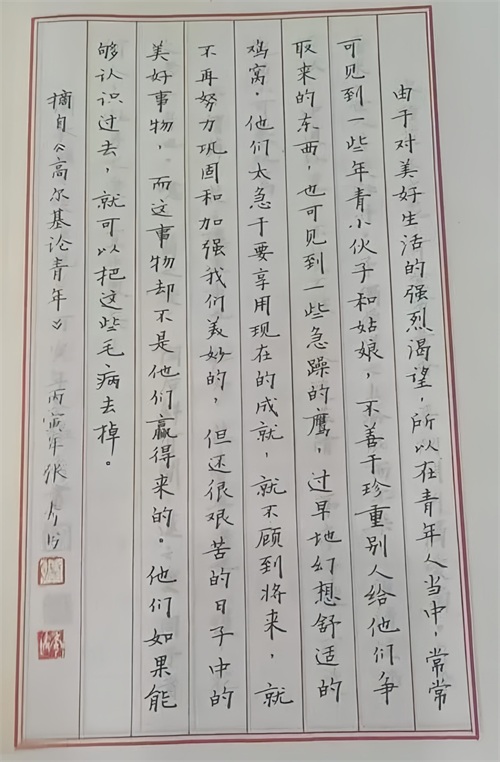 由于对美好生活的强烈渴望,所以在青年人当中,常常
可见到一些年青小伙子和姑娘,不善于珍重别人给他们争
取来的东西,也可见到一些急躁的鹰,过早地幻想舒适的
鸡窝.他们太急于要享用现在的成就,就不顾到将来,就
不再努力巩固和加强我们美妙的,但还很艰苦的日子中的
美好事物,而这事物却不是他们赢得来的。他们如果能
够认识过去,就可以把这些毛病去掉。
摘自《高尔基论青年》 丙寅年张